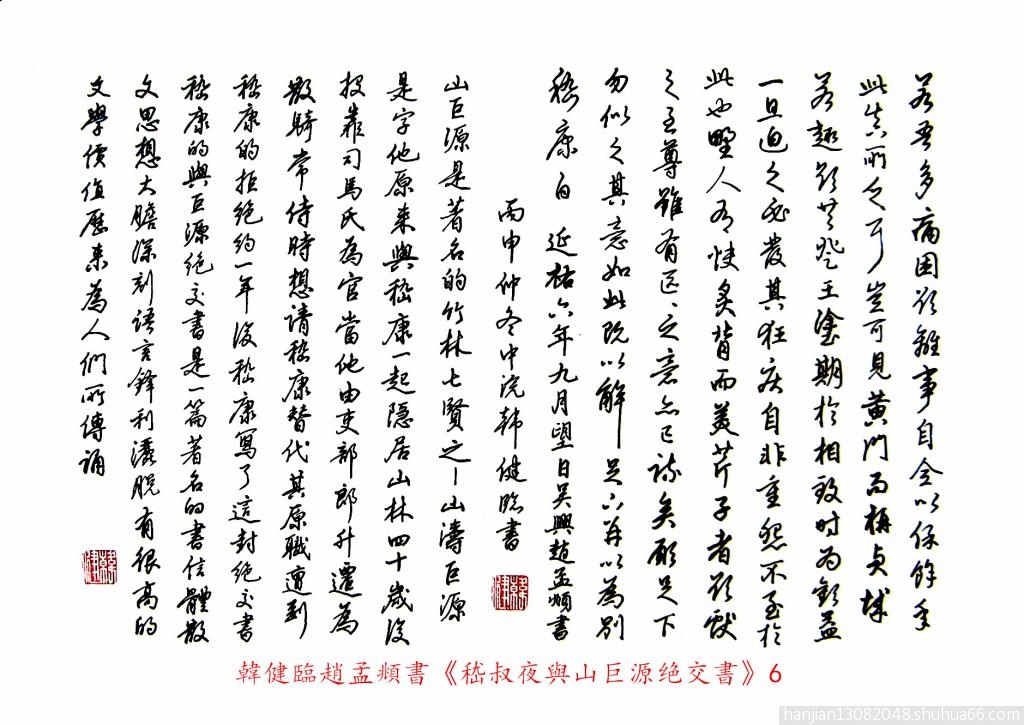 若吾多病困欲離事自全以保餘年
此真所乏耳豈可見黃門而稱貞哉
若趣欲共登王塗期於相致時為歡益
一旦迫之必發其狂疾自非重怨不至於
此也野人有快炙背而美芹子者欲獻
之至尊雖有区〻之意亦已疏矣願足下
勿似之其意如此既以解足下并以為別
嵇康白 延祐六年九月望日吳興趙孟頫書
丙申仲冬中浣韩健臨書
山巨源是著名的竹林七賢之一山濤巨源
是字他原来與嵇康一起隱居山林四十歲後
投靠司馬氏為官當他由吏部郎升遷為
散騎常侍時想請嵇康替代其原職遭到
嵇康的拒绝約一年後嵇康寫了這封绝交書
嵇康的與巨源绝交書是一篇著名的書信體散
文思想大膽深刻語言鋒利灑脱有很高的
文學價值歷来為人們所傳誦
韓健臨趙孟頫書《嵇叔夜與山巨源绝交書》6
hanjian13082048.shuhua66.com